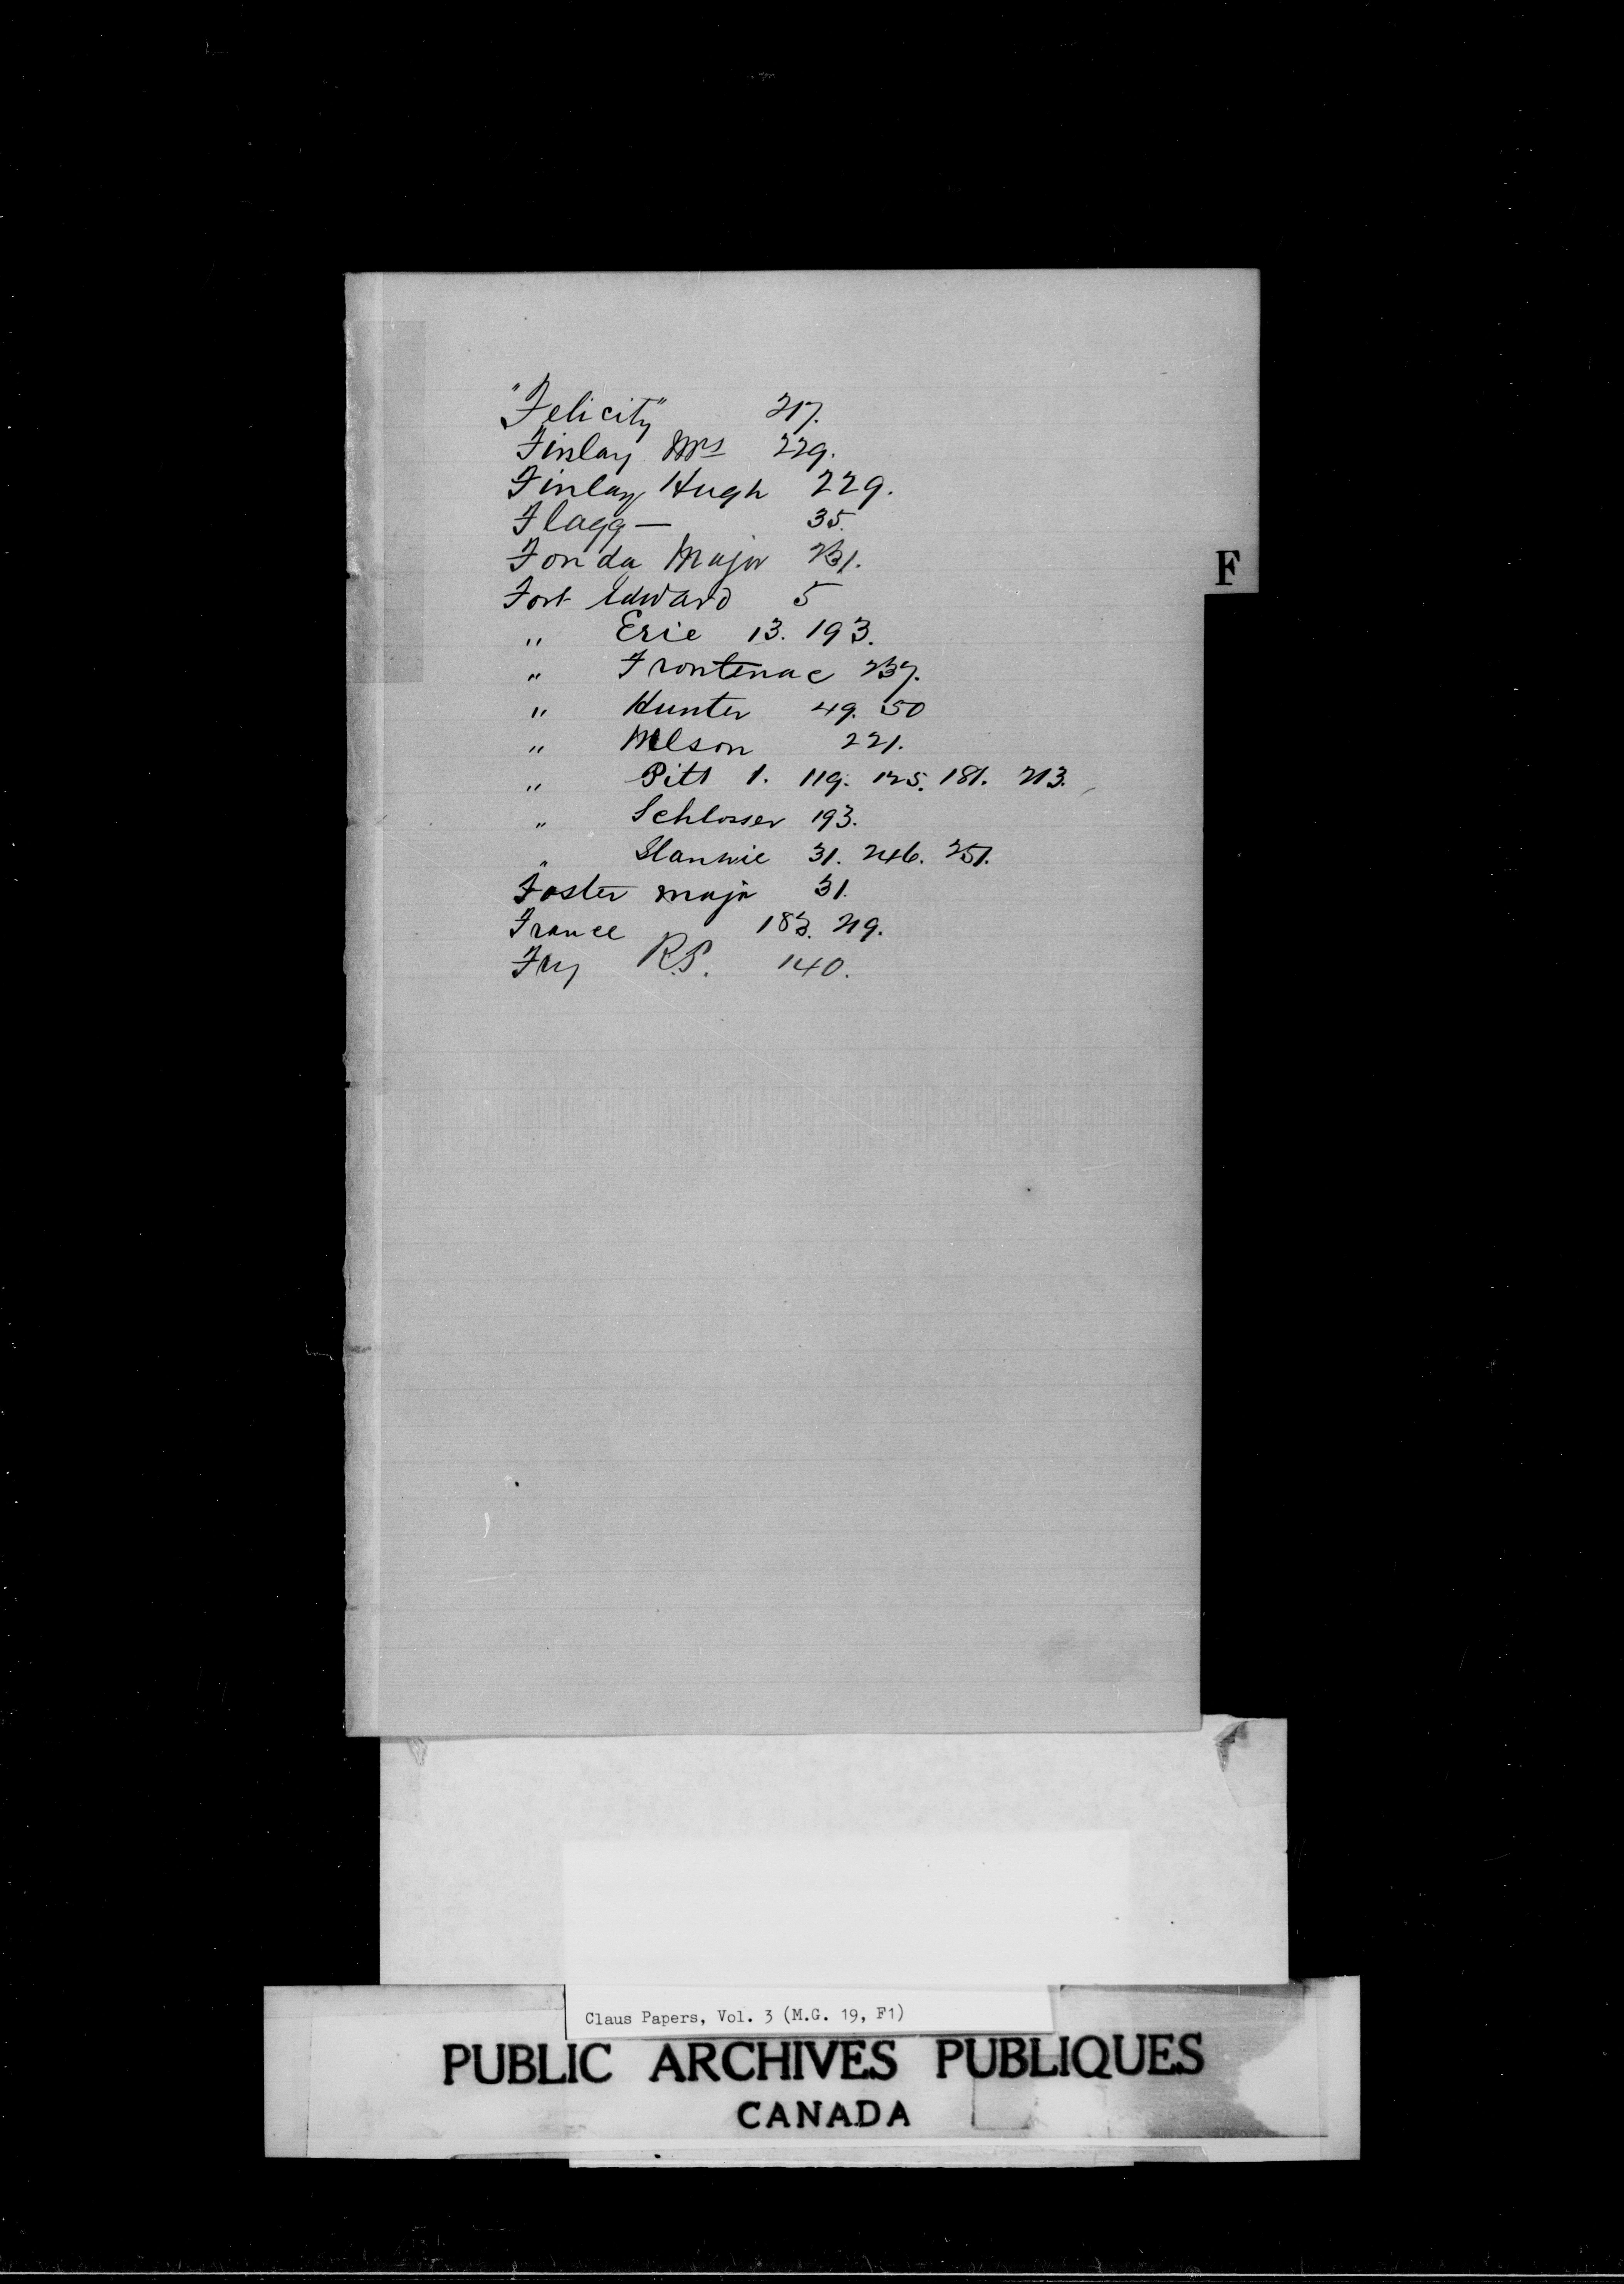 "Felicity" 217.
Finlay Mrs 229.
Finlay Hugh 229.
Flagg — 35.
Fonda Major 231.
Fort Edward 5
" Erie 13. 193.
" Frontenac 237.
" Hunter 49. 50
" Nelson 221.
" Pitt 1. 119. 125. 181. 213.
" Schlosser 193.
" Stanwie 31. 246. 251.
Foster major 31.
France 183. 219.
Fry R.P. 140.
F
Claus Papers, Vol. 3 (M.G. 19, F1)
PUBLIC ARCHIVES PUBLIQUES
CANADA